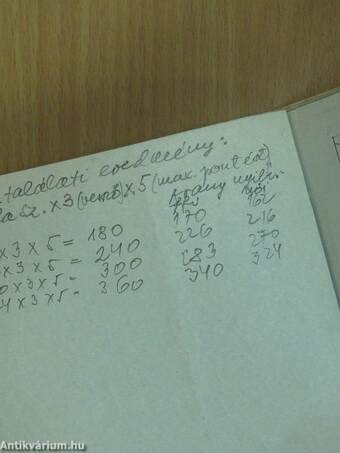 találati eredmény:
sz. x3 (versz) x 5 (max. pontért)
arany nyilv.
x 3 x 5 = 180 170 162
x 3 x 5 = 240 226 216
0 x 3 x 5 = 300 283 270
4 x 3 x 5 = 360 340 324
Antikvárium.hu